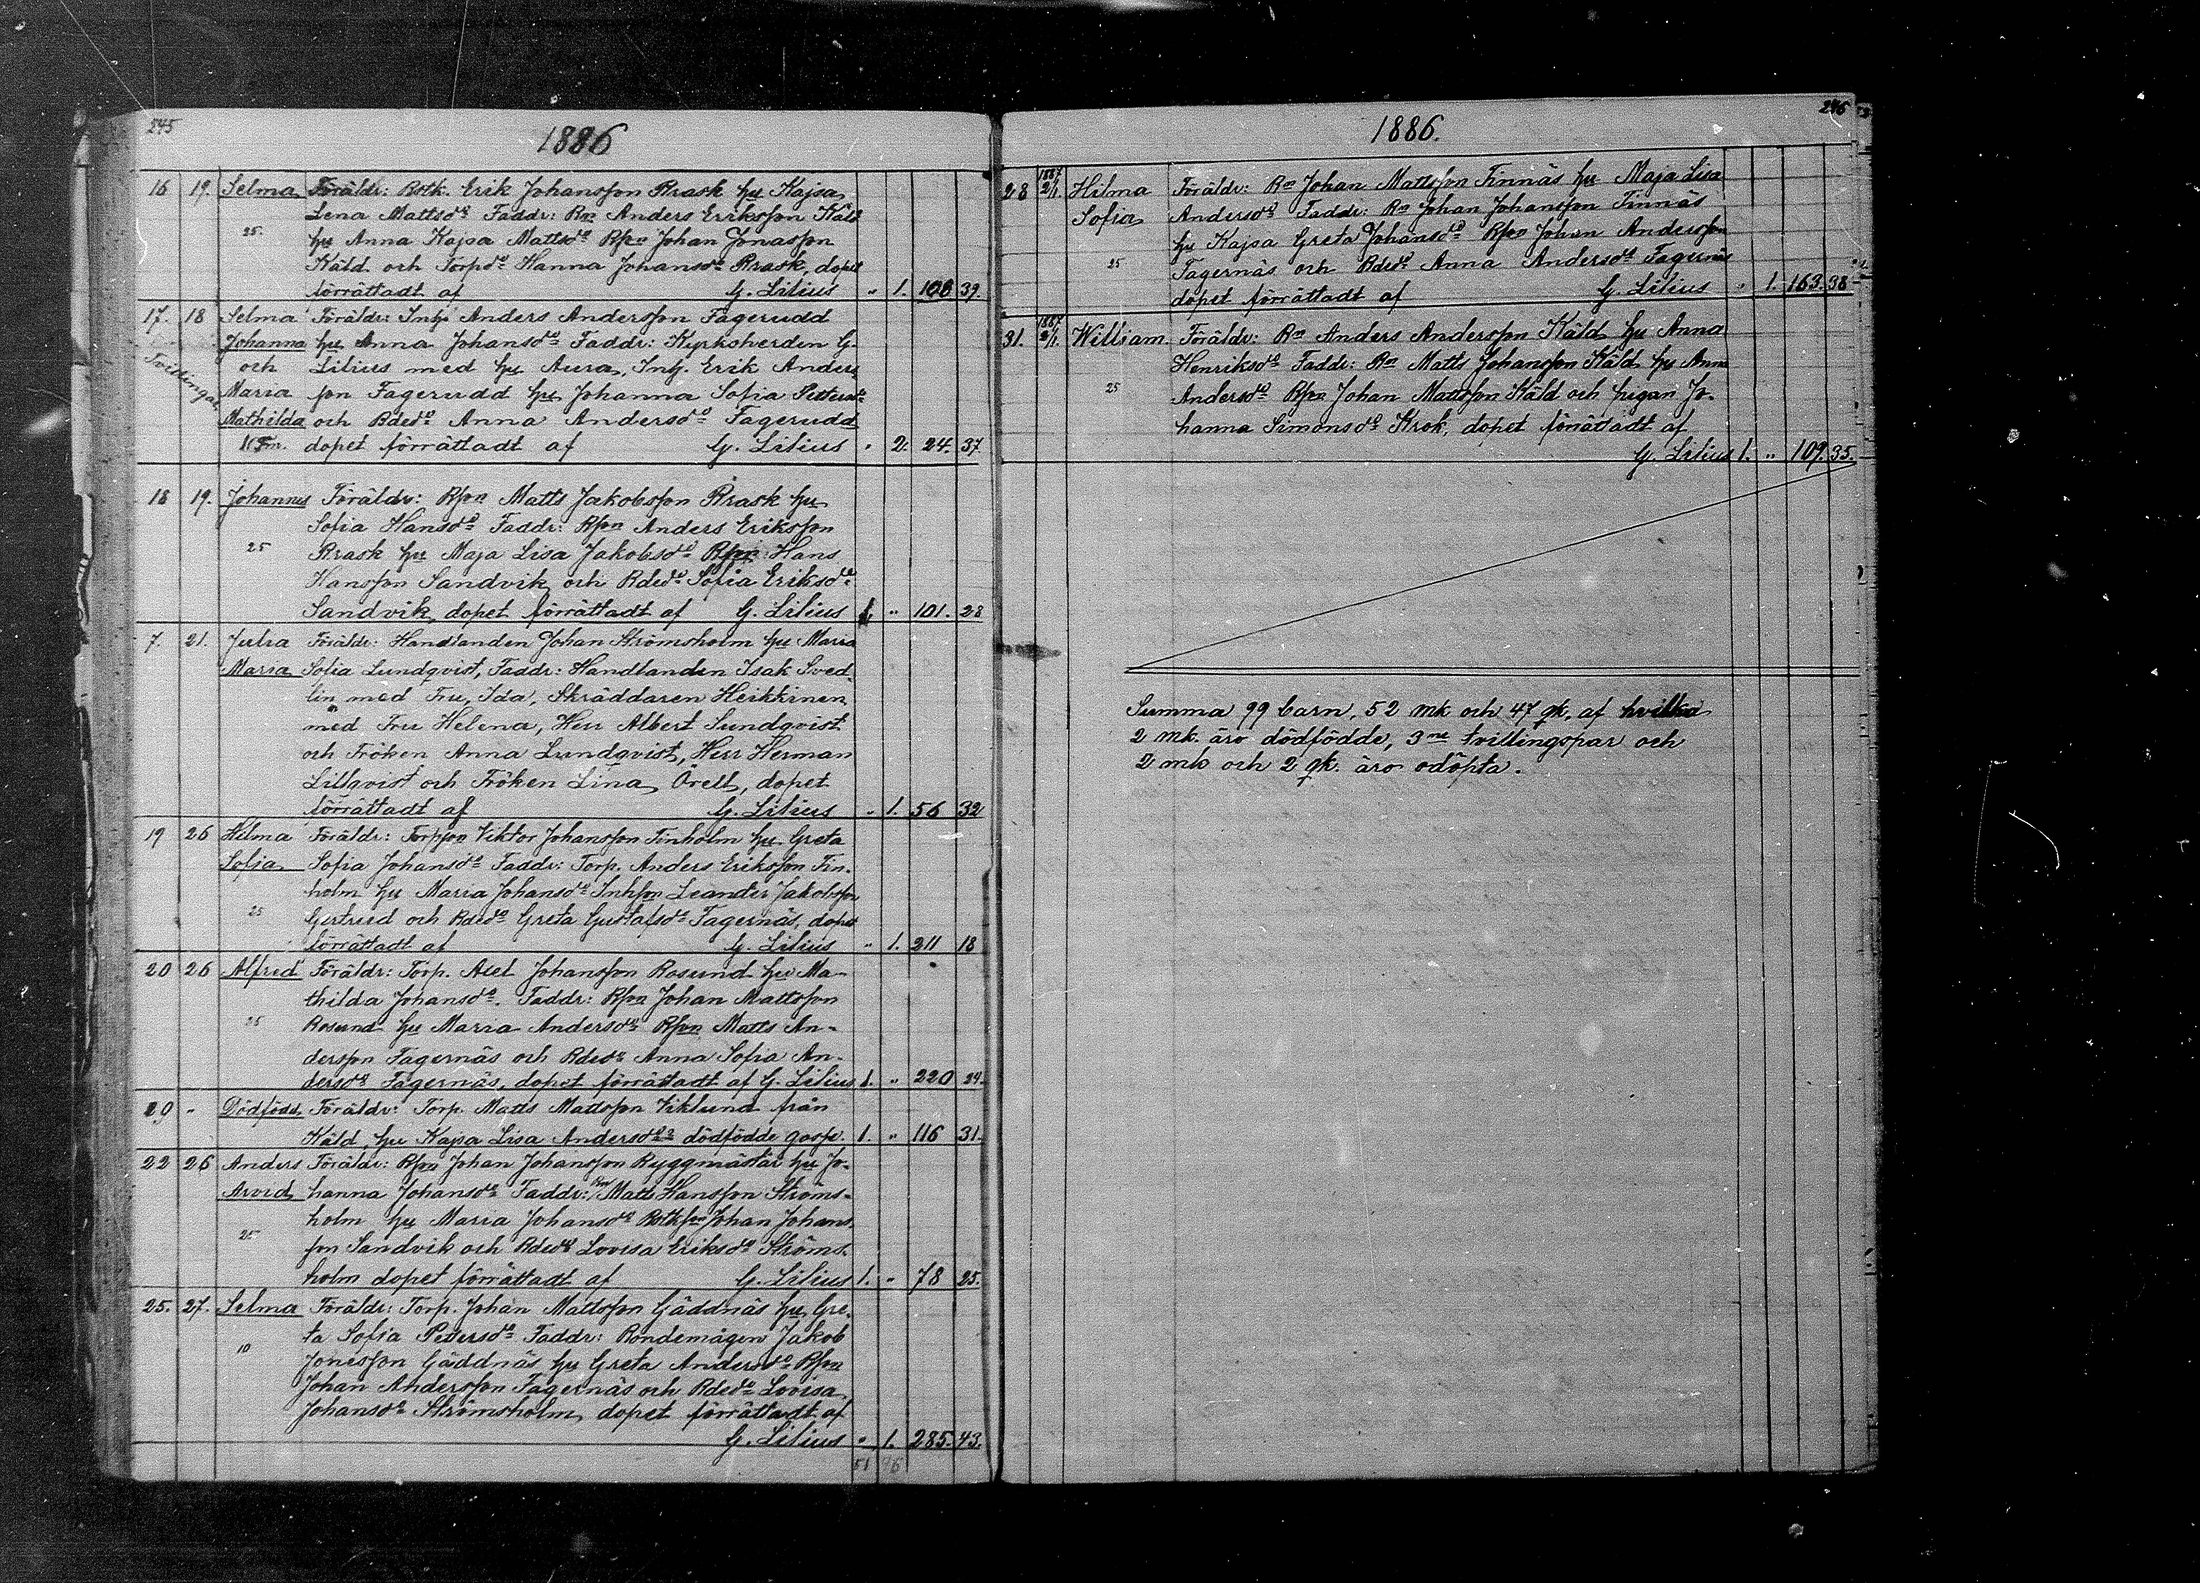 245
1886
16 19. Selma Föräldr: Botk. Erik Johansson Brask hu Kajsa
Lena Mattsdr Faddr: Bn Anders Eriksson Käld
25 hu Anna Kajsa Mattsdr Bson Johan Jonasson
Käld och Torpdr Hanna Johansdr Brask, dopet
förrättadt af G. Lilius " 1. 106 39.
17. 18 Selma Föräldr: Inhs Anders Andersson Fagerudd
Johanna hu Anna Johansdr Faddr: Kyrkoherden G.
Tvillingar och Lilius med hu Aura, Inh. Erik Anders
Maria son Fagerudd hu Johanna Sofia Pettersdr
Mathilda och Bdedr Anna Andersdr Fagerudd
dopet förrättadt af G. Lilius " 2. 24. 37.
18 19. Johannes Föräldr: Bson Matts Jakobsson Brask hu
Sofia Hansdr Faddr: Bson Anders Eriksson
25 Brask hu Maja Lisa Jakobsdr Bson Hans
Hansson Sandvik och Bdedr Sofia Eriksdr
Sandvik, dopet förrättadt af G. Lilius 1. " 101. 28
7. 21. Julia Föräldr: Handlanden Johan Strömsholm hu Maria
Maria Sofia Lundqvist, Faddr: Handlanden Isak Sved
lin med Fru Ida, Skräddaren Heikkinen
med Fru Helena, Herr Albert Sundqvist
och Fröken Anna Lundqvist, Herr Herman
Lillqvist och Fröken Lina Orell, dopet
förrättadt af G. Lilius " 1. 56 32
19 26 Hilma Föräldr: Torpson Viktor Johansson Finholm hu Greta
Sofia Sofia Johansdr Faddr: Torp. Anders Eriksson Fin-
holm hu Maria Johansdr Inhson Leander Jakobsson
25 Gertrud och Bdedr Greta Gustafsdr Fagernäs, dopet
förrättadt af G. Lilius " 1. 211 18
20 26 Alfred Föräldr: Torp. Axel Johansson Rosund hu Ma-
thilda Johansdr. Faddr: Bson Johan Mattsson
25 Rosund hu Maria Andersdr Bson Matts An-
dersson Fagernäs och Bdedr Anna Sofia An-
dersdr Fagernäs, dopet förrättadt af G. Lilius 1. " 220 24.
20 " Dödfödd. Föräldr: Torp. Matts Mattsson Viklund från
Käld, hu Kajsa Lisa Andersdrs dödfödde gosse. 1. " 116 31.
22 26 Anders Föräldr: Bson Johan Johansson Byggmästar hu Jo-
Arvid hanna Johansdr Faddr: Bn Matts Hansson Ströms-
holm hu Maria Johansdr Botkson Johan Johans-
25 son Sandvik och Bdedr Lovisa Eriksdr Ströms-
holm dopet förrättadt af G. Lilius 1. " 78 25.
25. 27. Selma Föräldr: Torp. Johan Mattsson Gäddnäs hu Gre-
ta Sofia Pettersdr Faddr: Bondemågen Jakob
10 Jonesson Gäddnäs hu Greta Andersdr Bson
Johan Andersson Fagernäs och Bdedr Lovisa
Johansdr Strömsholm, dopet förrättadt af
G. Lilius " 1. 285. 43.
51
246
1886.
28 1887 2/1. Hilma Föräldr: Bn Johan Mattsson Finnäs hu Maja Lisa
Sofia Andersdr Faddr: Bn Johan Johansson Finnäs
hu Kajsa Greta Johansdr Bson Johan Andersson
25 Fagernäs och Bdedr Anna Andersdr Fagernäs
dopet förrättadt af G. Lilius " 1. 163. 38
31. 1887 2/1. William. Föräldr: Bn Anders Andersson Käld hu Anna
Henriksdr Faddr: Bn Matts Johansson Käld hu Anna
25 Andersdr Bson Johan Mattsson Käld och pigan Jo-
hanna Simonsdr Krok, dopet förrättadt af
G. Lilius 1. " 109. 35.
Summa 99 barn, 52 mk och 47 qk, af hvilka
2 mk. äro dödfödde, 3ne tvillingspar och
2 mk och 2 qk. äro odöpta.